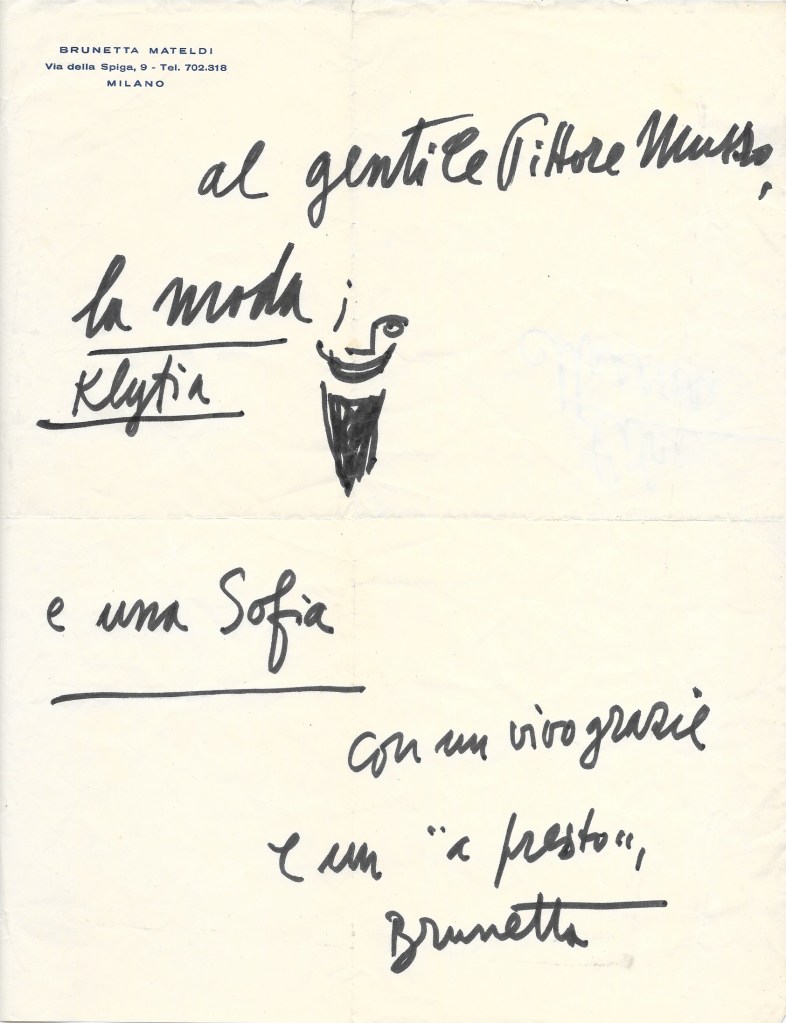 BRUNETTA MATELDI
Via della Spiga, 9 - Tel. 702.318
MILANO
al gentile Pittore Musso,
la moda
Klytia
e una Sofia
con un vivo grazie
e un "a presto",
Brunetta